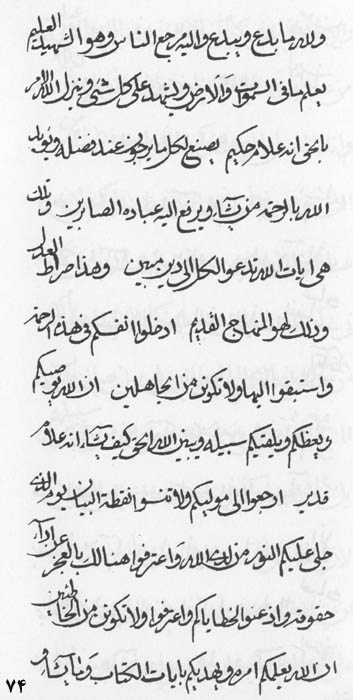 ولله ما يدع ويبدع واليه رجع الناس وهو الشهيد العليم
يعلم ما فى السموات والارض ويشهد على كل شئ وينزل الامر
بالحق انه علام حكيم يصنع لكل ما يرجون عند فضله ويؤيد
الله بالرحمة من يشاء ويرفع اليه عباده الصابرين وتلك
هى ايات الله يدعو الكل الى دين مبين وهذا صراط العدل
وذلك لهو المنهاج القديم ادخلوا انفسكم فى هذه الرحمة
واستبقوا اليها ولا تكونن من الجاهلين ان الله يوصيكم
ويعظكم ويلقيكم سبيله ويبين الله الحق كيف يشاء انه علام
قدير ارجعوا الى موليكم ولا تنسوا نقطة البيان يوم الذى
جلى عليكم النور من لدى الله واعترفوا هنالك بالعجز عن اداء
حقوقه واذعنوا لخطاياكم واعترفوا ولا تكونن من الخاطئين
ان الله يعلمكم امره ويهديكم بايات الكتاب
۷۴